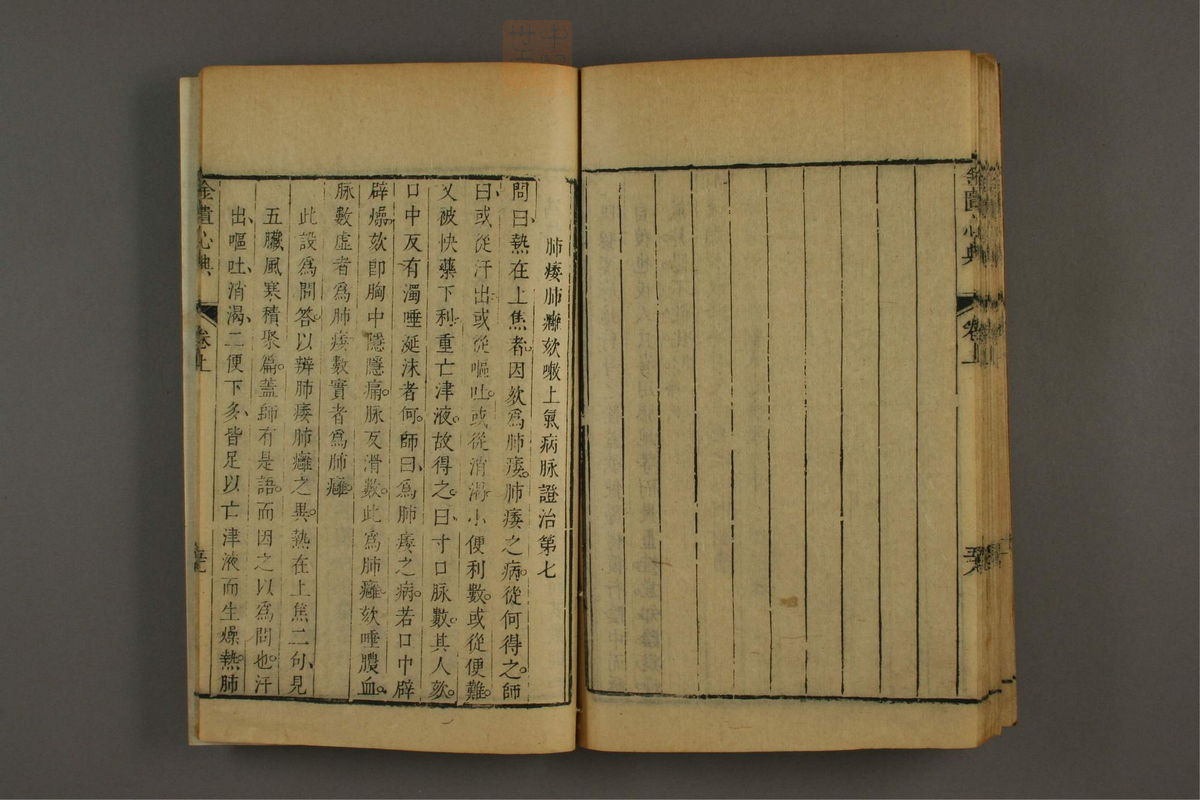 金匱心典 卷上
肺痿肺癰欬嗽上氣病脉證治第七
問曰、熱在上焦者。因欬爲肺痿。肺痿之病。從何得之。師
曰、或從汗出。或從嘔吐。或從消渴。小便利數。或從便難。
又被快藥下利。重亡津液。故得之。曰、寸口脉數。其人欬。
口中反有濁唾涎沫者何。師曰、爲肺痿之病。若口中辟
辟燥。欬卽胸中隱隱痛。脉反滑數。此爲肺癰。欬唾膿血。
脉數虛者爲肺痿。數實者爲肺癰。
此設爲問答。以辨肺痿肺癰之異。熱在上焦二句、見
五臟風寒積聚篇。蓋師有是語。而因之以爲問也。汗
出、嘔吐、消渴、二便下多、皆足以亡津液而生燥熱。肺
金匱心典 卷上